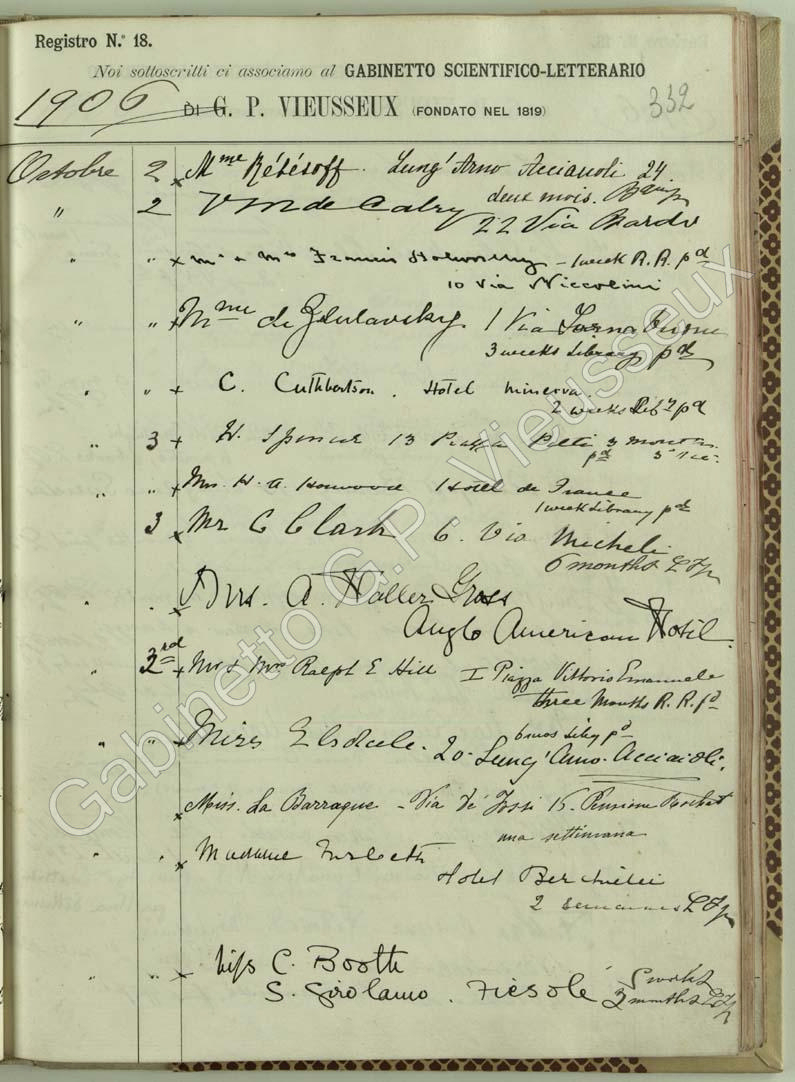 Registro N.º 18.
Noi sottoscritti ci associamo al GABINETTO SCIENTIFICO-LETTERARIO
1906 DI G. P. VIEUSSEUX (FONDATO NEL 1819) 332
Octobre 2 x Mme Lung' Arno Acciauoli 24.
" 2 deux mois.
22 Via Bardi
" " x Mr & Mrs Francis Holworthy - 1 week R. R. pd
10 Via Niccolini
" " x Mme de 1 Via Torna buoni
3 weeks Library pd
" " x C. Cuthbertson. Hotel Minerva.
2 weeks pd
" 3 x H. Spencer 13 Piazza Pitti 3 months
pd
" " x Mrs. H. A. Hotel de France
1 week Library pd
3 x Mr C Clark 6. Via Micheli
6 months
" . x Mrs. A. Haller Gross
Anglo American Hotel.
" 3rd x Mr & Mrs Ralph E Hill I Piazza Vittorio Emanuele
three Months R. R. pd
6 mos Liby pd
" " x 20. Lung' Arno. Acciaioli.
x Miss. La Barraque - Via de' 15. Pensione
una settimana
" " x Madame
Hotel
2 semaines
" " x Miss C. Booth
S. Girolamo. Fiesole
3 months
Gabinetto G.P. Vieusseux